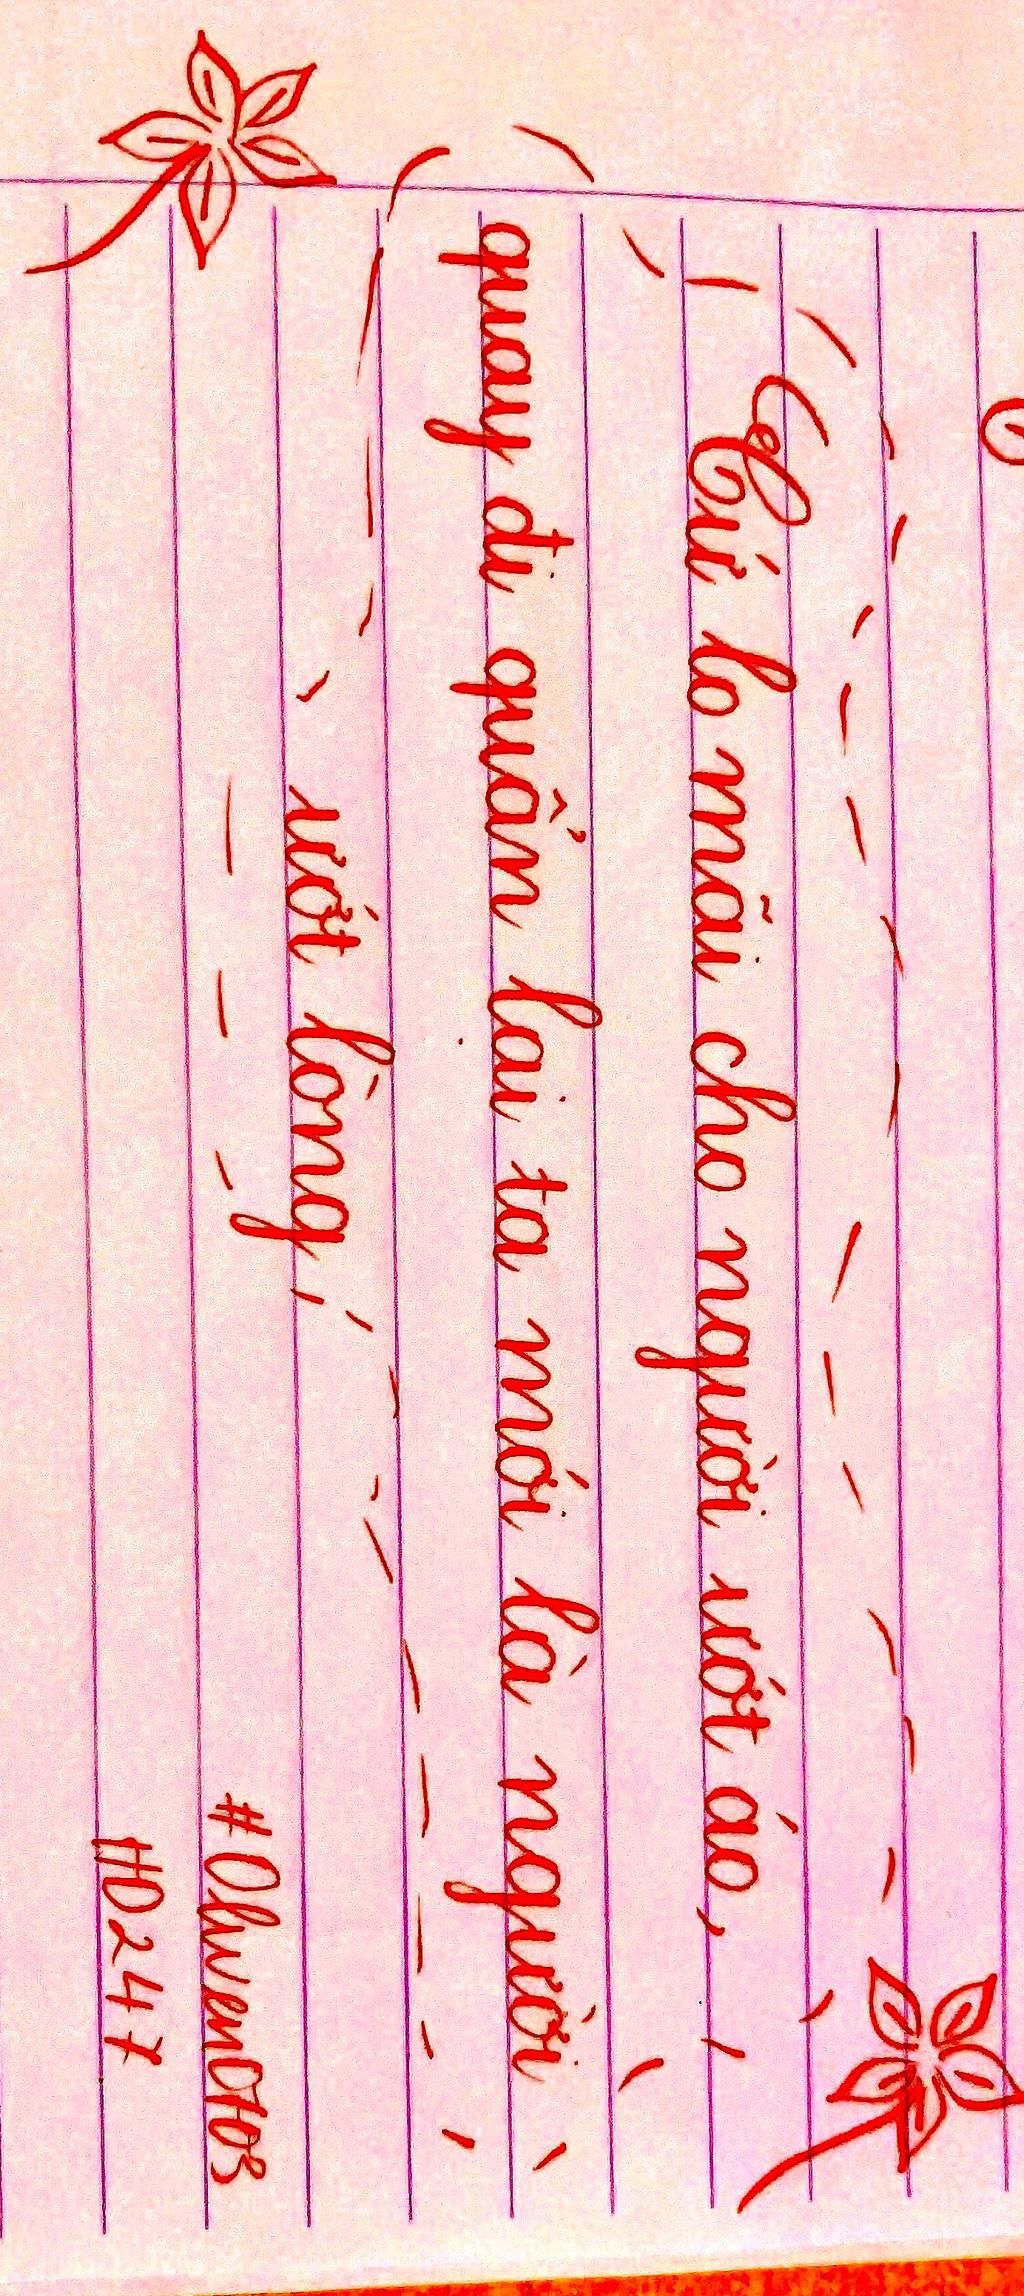 Cứ lo mãi cho người ướt áo,
quay đi quẩn lại ta mới là người
ướt lòng
HD247